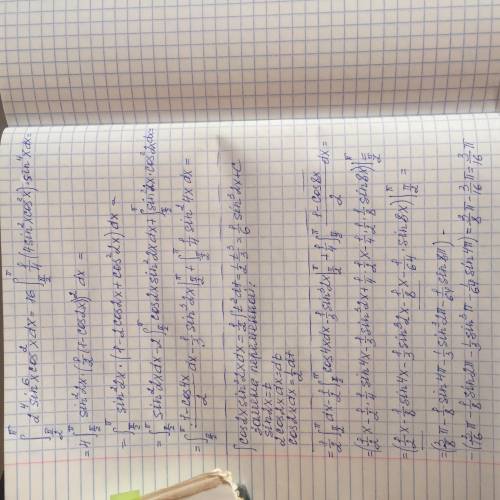 ∫_{π/2}^{π} 2⁴ sin⁶x cos²x dx = 16 ∫_{π/2}^{π} 1/4 (4 sin²x cos²x) · sin⁴x dx =
= 4 ∫_{π/2}^{π} sin²2x · (1/2 (1 - cos2x))² dx =
= ∫_{π/2}^{π} sin²2x · (1 - 2cos2x + cos²2x) dx =
= ∫_{π/2}^{π} sin²2x dx - 2 ∫_{π/2}^{π} cos2x sin²2x dx + ∫_{π/2}^{π} sin²2x · cos²2x dx =
= ∫_{π/2}^{π} (1 - cos4x)/2 dx - 1/3 sin³2x |_{π/2}^{π} + ∫_{π/2}^{π} 1/4 sin²4x dx =
∫ cos2x sin²2x dx = 1/2 ∫ t² dt = 1/2 · t³/3 = 1/6 sin³2x + C
замена переменной:
sin2x = t
2cos2x dx = dt
cos2x dx = 1/2 dt
= 1/2 ∫_{π/2}^{π} dx - 1/2 ∫_{π/2}^{π} cos4x dx - 1/3 sin³2x |_{π/2}^{π} + 1/4 ∫_{π/2}^{π} (1 - cos8x)/2 dx =
= (1/2 x - 1/2 · 1/4 sin4x - 1/3 sin³2x + 1/4 · 1/2 x - 1/4 · 1/2 · 1/8 sin8x) |_{π/2}^{π} =
= (1/2 x - 1/8 sin4x - 1/3 sin³2x - 1/8 x - 1/64 · sin8x) |_{π/2}^{π} =
= (3/8 π - 1/8 sin4π - 1/3 sin³2π - 1/64 sin8π) -
- (3/16 π - 1/8 sin2π - 1/3 sin³π - 1/64 sin4π) = 3/8 π - 3/16 π = 3/16 π